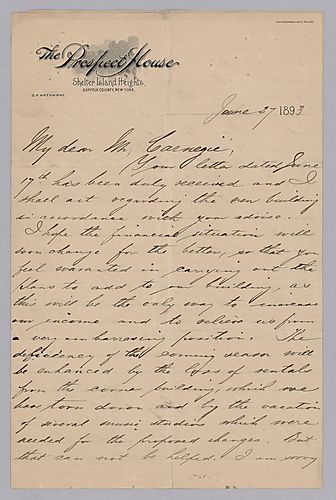 The Prospect House
Shelter Island Heights,
SUFFOLK COUNTY, NEW YORK.
D. P. HATHAWAY.
June 27 1893
My dear Mr. Carnegie,
Your letter dated June
17th has been duly received and I
shall act regarding the new building
in accordance with your advise.
I hope the financial situation will
soon change for the better, so that you
feel waranted in carrying out the
plans to add to our building, as
this will be the only way to increase
our income and to relieve us from
a very embarrassing position. The
deficiency of the coming season will
be enhanced by the loss of rentals
from the corner building, which we
have torn down and by the vacation
of several music studios which were
needed for the proposed changes. But
that can not be helped. I am sorry